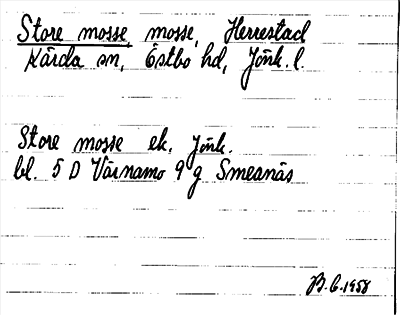 Store mosse, mosse, Herrestad
Kärda sn, Östbo hd, Jönk. l.
Store mosse ek. Jönk.
bl. 5 D Värnamo 9 g Smesnäs
B.C.1958